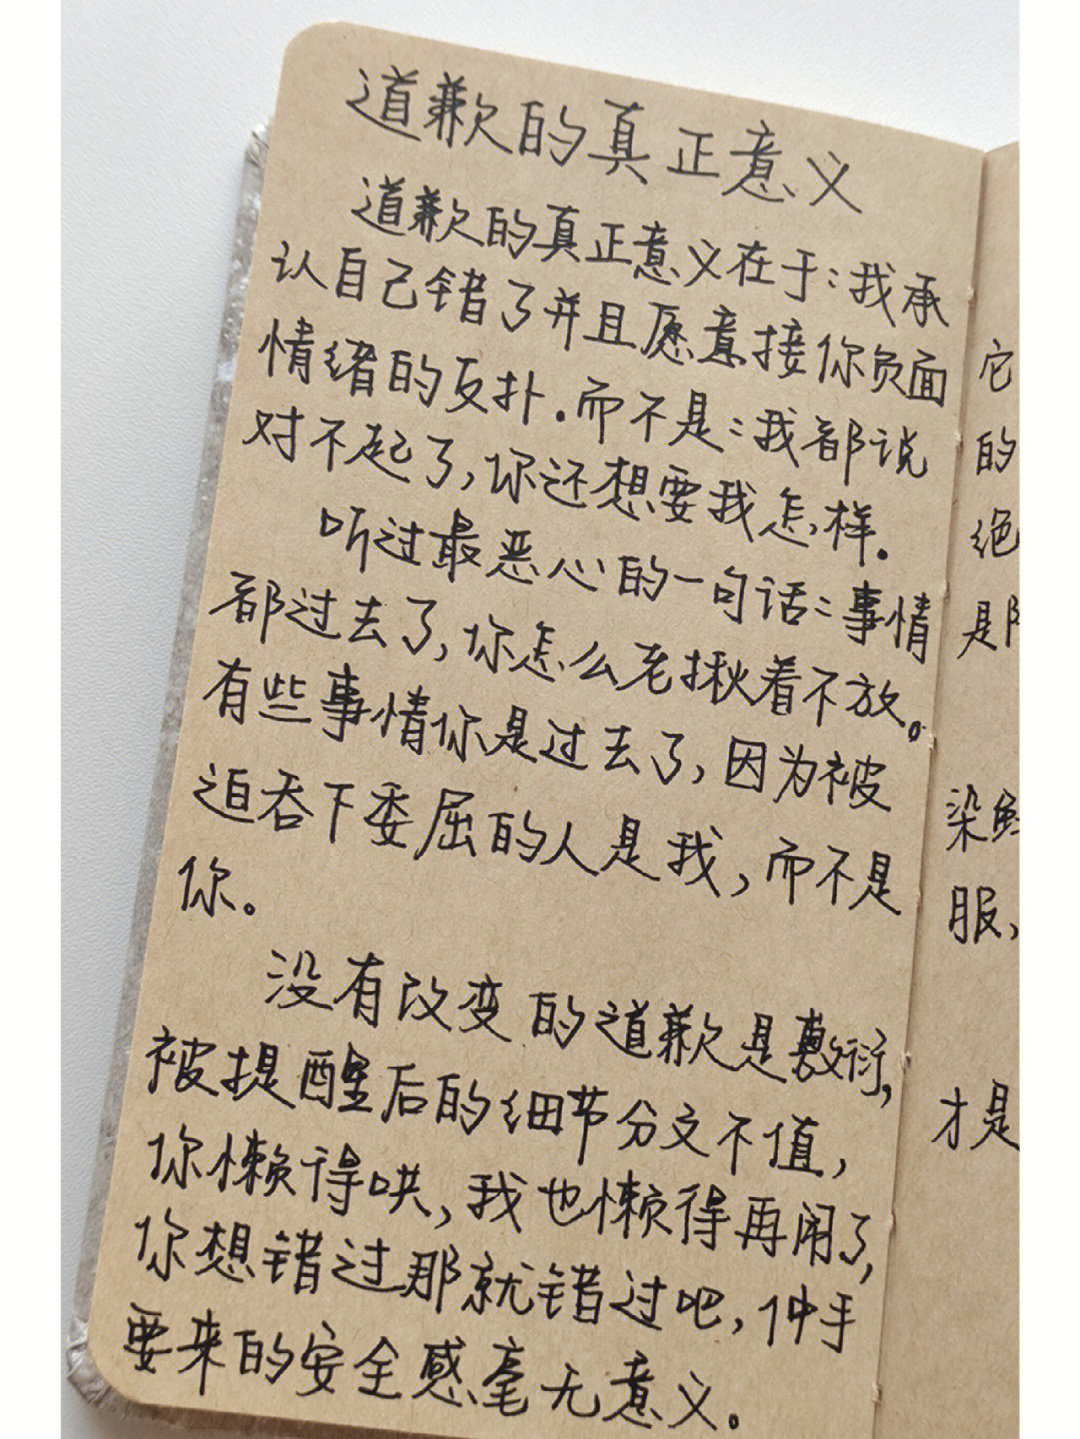 道歉的真正意义
道歉的真正意义在于:我承
认自己错了并且愿意接你负面
情绪的反扑.而不是:我都说
对不起了,你还想要我怎样.
听过最恶心的一句话:事情
都过去了,你怎么老揪着不放。
有些事情你是过去了,因为被
迫吞下委屈的人是我,而不是
你。
没有改变的道歉是敷衍,
被提醒后的细节分文不值,
你懒得哄,我也懒得再闹了,
你想错过那就错过吧,伸手
要来的安全感毫无意义。
它
的
绝
是
染
服,
才是